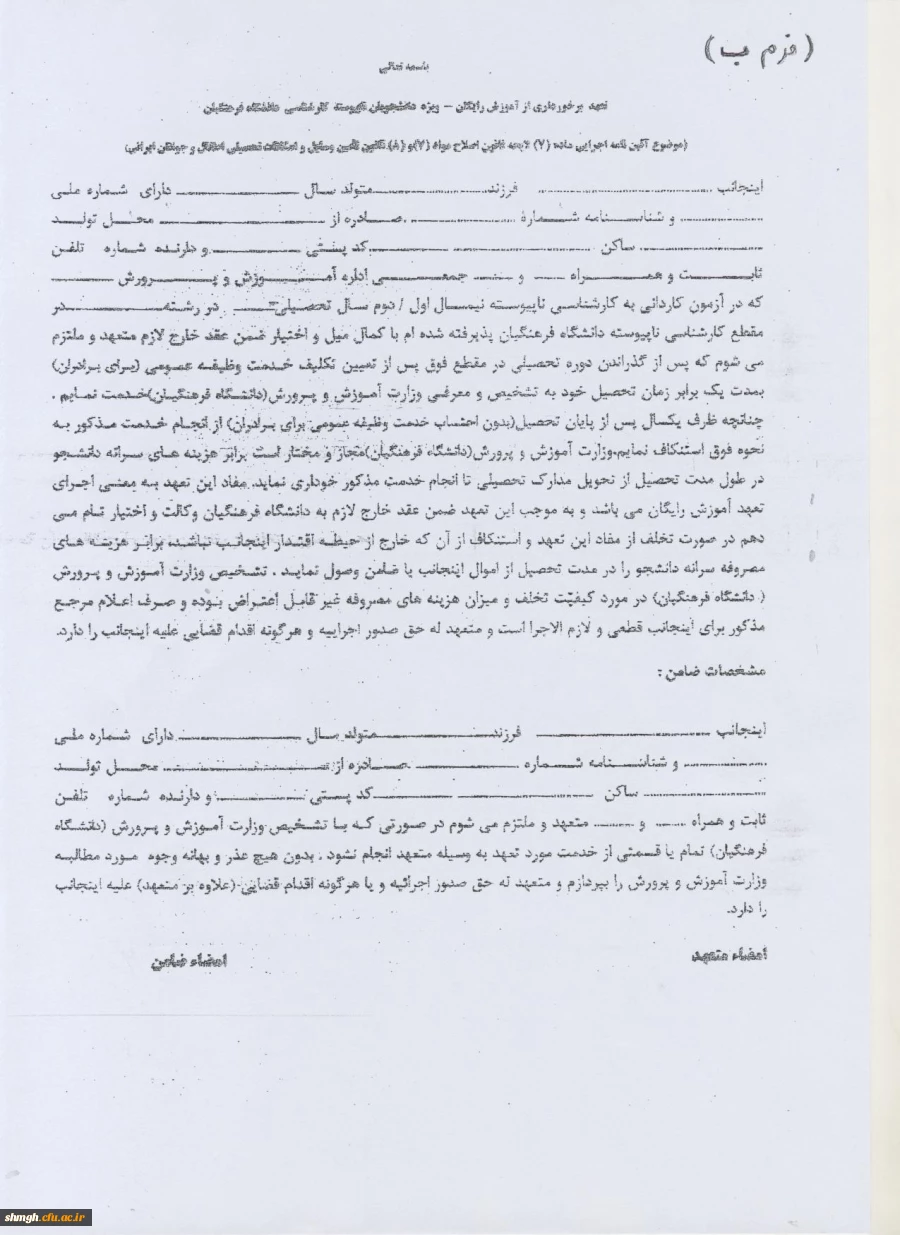 ( فرم ب )
باسمه تعالی
تعهد برخورداری از آموزش رایگان – ویژه دانشجویان ناپیوسته کارشناسی دانشگاه فرهنگیان
(موضوع آئین نامه اجرایی ماده (۷) لایحه قانون اصلاح مواد (۷)و (۸) قانون تأمین وسایل و امکانات تحصیلی اطفال و جوانان ایرانی)
اینجانب .......... فرزند..........متولد سال .......... دارای شماره ملی
.......... و شناسنامه شمارهٔ .......... صادره از .......... محل تولد
.......... ساکن .......... کد پستی .......... و دارنده شماره تلفن
ثابت و همراه ...... و ...... جمعی اداره آموزش و پرورش ..........
که در آزمون کاردانی به کارشناسی ناپیوسته نیمسال اول / دوم سال تحصیلی ...... در رشته .......... در
مقطع کارشناسی ناپیوسته دانشگاه فرهنگیان پذیرفته شده ام با کمال میل و اختیار ضمن عقد خارج لازم متعهد و ملتزم
می شوم که پس از گذراندن دوره تحصیلی در مقطع فوق پس از تعیین تکلیف خدمت وظیفه عمومی (برای برادران)
بمدت یک برابر زمان تحصیل خود به تشخیص و معرفی وزارت آموزش و پرورش(دانشگاه فرهنگیان)خدمت نمایم .
چنانچه ظرف یکسال پس از پایان تحصیل(بدون احتساب خدمت وظیفه عمومی برای برادران) از انجام خدمت مذکور به
نحوه فوق استنکاف نمایم،وزارت آموزش و پرورش(دانشگاه فرهنگیان)مجاز و مختار است برابر هزینه های سرانه دانشجو
در طول مدت تحصیل از تحویل مدارک تحصیلی تا انجام خدمت مذکور خوداری نماید. مفاد این تعهد به معنی اجرای
تعهد آموزش رایگان می باشد و به موجب این تعهد ضمن عقد خارج لازم به دانشگاه فرهنگیان وکالت و اختیار تام می
دهم در صورت تخلف از مفاد این تعهد و استنکاف از آن که خارج از حیطه اقتدار اینجانب نباشد، برابر هزینه های
مصروفه سرانه دانشجو را در مدت تحصیل از اموال اینجانب یا ضامن وصول نماید . تشخیص وزارت آموزش و پرورش
( دانشگاه فرهنگیان) در مورد کیفیت تخلف و میزان هزینه های مصروفه غیر قابل اعتراض بوده و صرف اعلام مرجع
مذکور برای اینجانب قطعی و لازم الاجرا است و متعهد له حق صدور اجراییه و هرگونه اقدام قضایی علیه اینجانب را دارد.
مشخصات ضامن :
اینجانب .......... فرزند..........متولد سال .......... دارای شماره ملی
.......... و شناسنامه شماره .......... صادره از .......... محل تولد
.......... ساکن .......... کد پستی .......... و دارنده شماره تلفن
ثابت و همراه ...... و ...... متعهد و ملتزم می شوم در صورتی که بنا تشخیص وزارت آموزش و پرورش (دانشگاه
فرهنگیان) تمام یا قسمتی از خدمت مورد تعهد به وسیله متعهد انجام نشود ، بدون هیچ عذر و بهانه وجوه مورد مطالبه
وزارت آموزش و پرورش را بپردازم و متعهد له حق صدور اجرائیه و یا هرگونه اقدام قضایی (علاوه بر متعهد) علیه اینجانب
را دارد.
امضاء متعهد
امضاء ضامن
shmgh.cfu.ac.ir